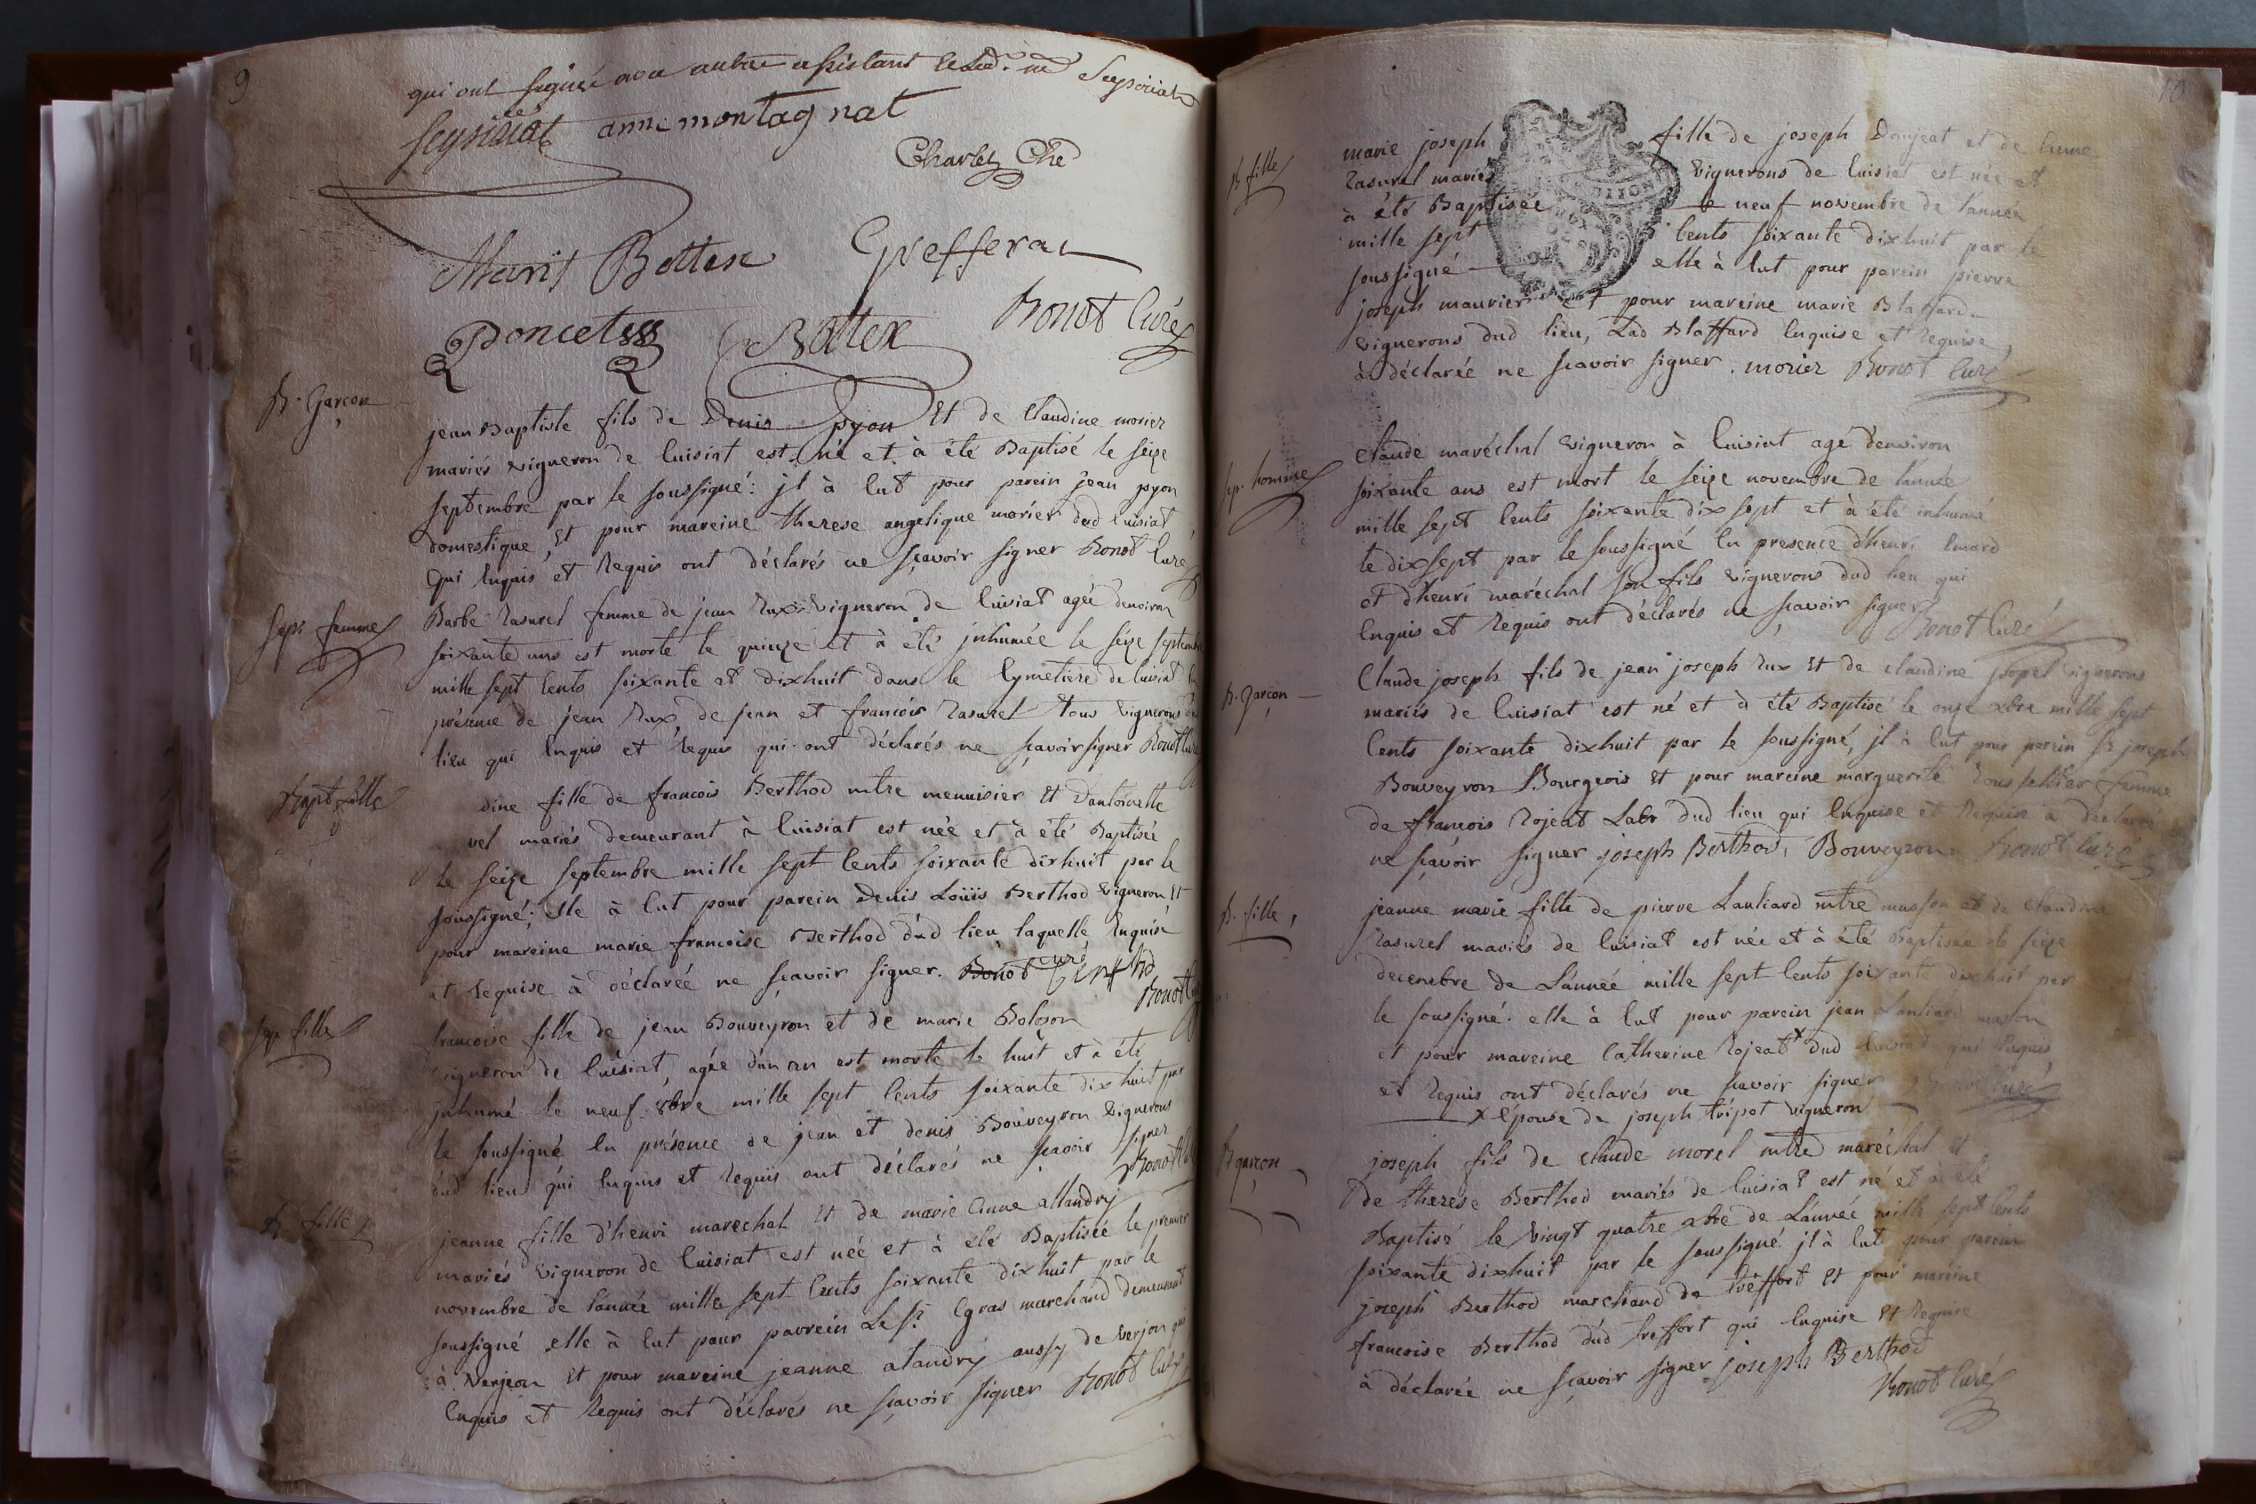 9
qui ont signé avec autre assistans
Seysiriat anne montagnat
Charles Ché
Maris Bottex Greffera
Poncet Bottex Bonot Curé
B. Garçon
jean Baptiste fils de Denis pyon Et de Claudine morier
mariés vigneron de Cuisiat est né et à été Baptisé le seize
septembre par le soussigné: jl à Eut pour parein jean pyon
domestique, Et pour mareine therese angelique morier dud Cuisiat
Qui Enquis et Requis ont déclarés ne sçavoir signer Bonot Curé
sep. femme
Barbe Rasurel femme de jean Rux vigneron de Cuisiat agée denviron
soixante ans est morte le quinze et à été jnhumée le séze septembre
mille sept Cents soixante et dixhuit dans le Cymetiere de Cuisiat En
présence de jean Rux, de jean et francois Rasurel tous vignerons dud
lieu qui Enquis et Requis qui ont déclarés ne sçavoir signer Bonot Curé
Bapt. fille
dine fille de francois Berthod mtre menuisier Et Dantoinette
vel mariés demeurant à Cuisiat est née et à été Baptisée
Le seize septembre mille sept Cents soixante dixhuit par le
soussigné; elle à Eut pour parein Denis Loüis Berthod vigneron Et
pour mareine marie francoise Berthod dud lieu laquelle Enquise
et Requise à déclarée ne sçavoir signer. Bonot Curé Berthod
Bonot Curé
sep. fille
francoise fille de jean Bouveyron et de marie Boloson
vigneron de Cuisiat, agée d'un an est morte le huit et à été
jnhumé le neuf 8bre mille sept Cents soixante dix huit par
le soussigné En présence de jean et denis Bouveyron vignerons
dud lieu qui Enquis et Requis ont déclarés ne sçavoir signer
Bonot Curé
B. fille
jeanne fille d'henri marechal Et de marie Anne allandry
mariés vigneron de Cuisiat est née et à été Baptisée le premier
novembre de l'année mille sept Cents soixante dix huit par le
soussigné elle à Eut pour parrein Le sr. Cgras marchand demeurant
à Verjeon Et pour mareine jeanne alandry aussy de verjon qui
Enquis et Requis ont déclarés ne sçavoir signer Bonot Curé
10
B. fille
marie joseph fille de joseph Doujeat et de
Rasurel mariés vignerons de Cuisiat est née et
à été Baptisée le neuf novembre de l'année
mille sept Cents soixante dixhuit par le
soussigné elle à Eut pour parein pierre
joseph maurier et pour mareine marie Blaffard
vignerons dud lieu, Lad Blaffard Enquise et Requise
à déclarée ne scavoir signer. morier Bonot Curé
sep. homme
Claude maréchal vigneron à Cuisiat agé denviron
soixante ans est mort le seize novembre de l'année
mille sept Cents soixante dix sept et à été inhumé
le dixsept par le soussigné En presence d'henri Emard
et d'henri maréchal son fils vignerons dud lieu qui
Enquis et Requis ont déclarés ne sçavoir signer
Bonot Curé
B. garçon
Claude joseph fils de jean joseph Rux Et de claudine vignerons
mariés de Cuisiat est né et à été Baptisé le onze xbre mille sept
Cents soixante dixhuit par le soussigné, jl à Eut pour parein sr joseph
Bouveyron Bourgeois Et pour mareine marguerite femme
de francois Rojeat Labr dud lieu qui Enquise et Requise à déclarée
ne sçavoir signer joseph Berthod, Bouveyron Bonot Curé
B. fille
jeanne marie fille de pierre Lauliard mtre masson et de Claudine
Rasurel mariés de Cuisiat est née et à été Baptisée le seize
decembre de L'année mille sept Cents soixante dixhuit par
le soussigné. elle à Eut pour parein jean Lauliard masson
et pour mareine Catherine Rojeat x dud Cuisiat qui Enquis
et Requis ont déclarés ne scavoir signer Bonot Curé
x l'épouse de joseph tripot vigneron
B garçon
joseph fils de Claude morel mtre maréchal et
de therese Berthod mariés de Cuisiat est né et à été
Baptisé le vingt quatre xbre de L'année mille sept Cents
soixante dixhuit par le soussigné jl à Eut pour parein
joseph Berthod marchand de treffort Et pour mareine
francoise Berthod dud treffort qui Enquise Et Requise
à déclarée ne sçavoir signer joseph Berthod
Bonot Curé